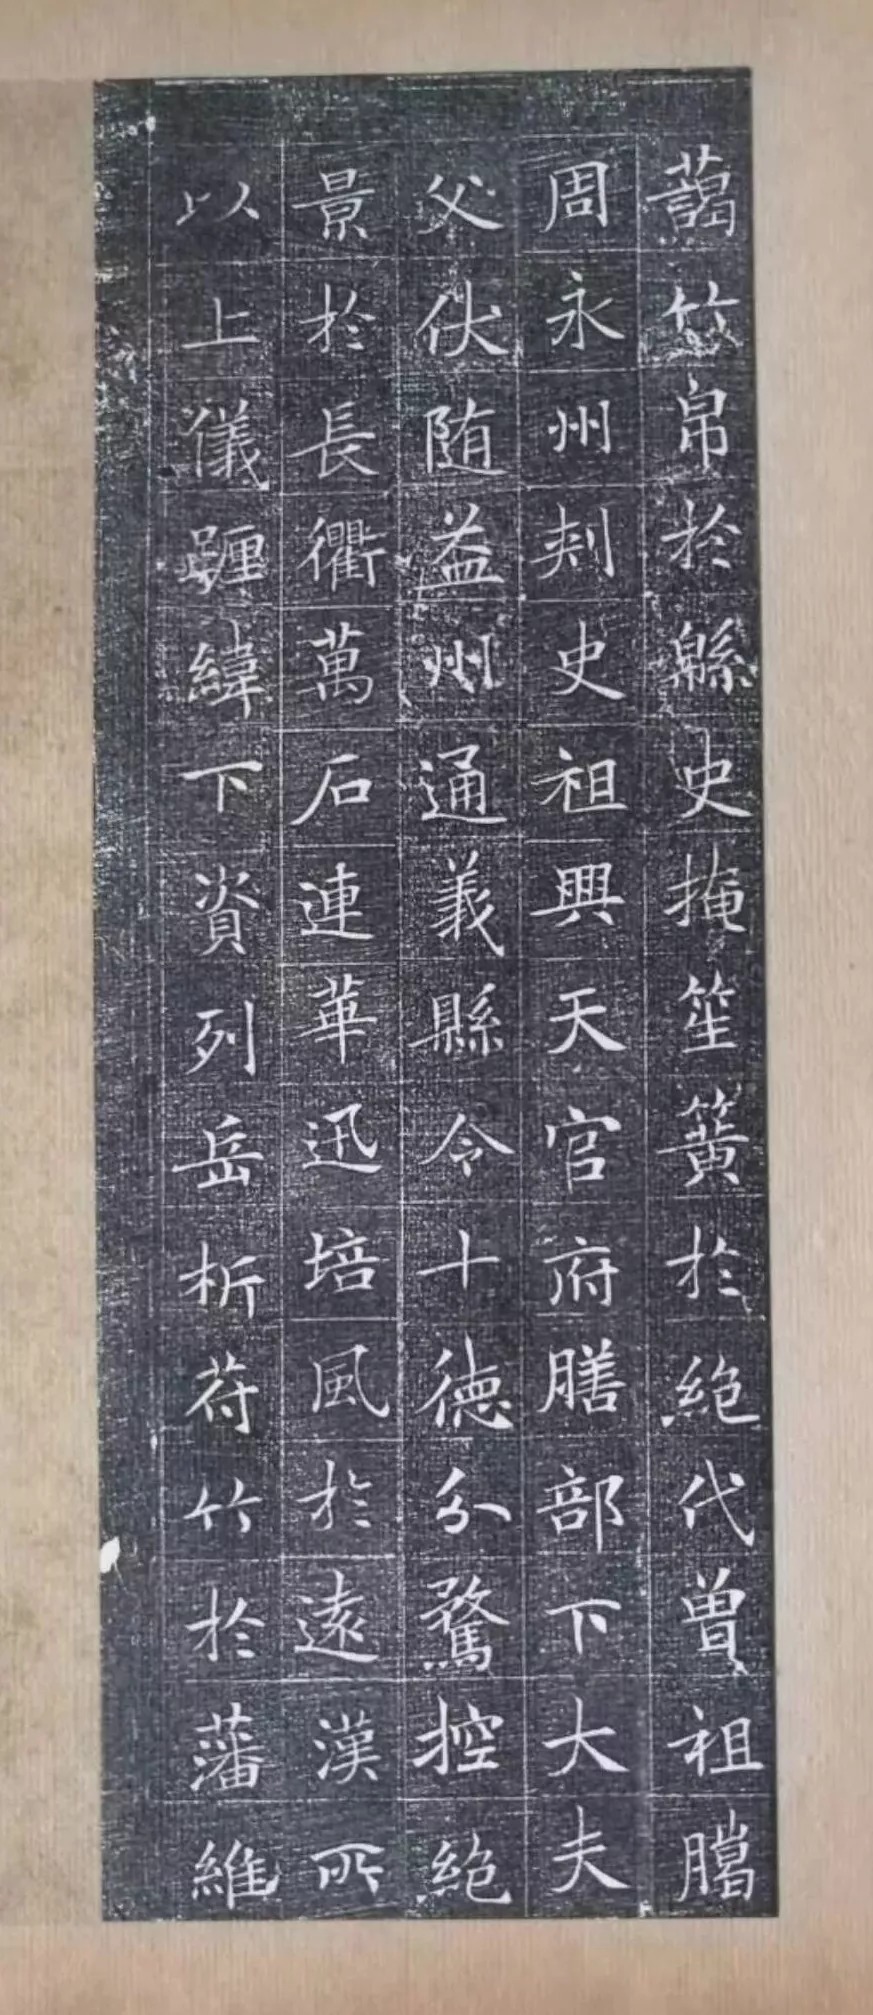 藹竹帛於緜史掩笙簧於絶代曽祖
周永州刾史祖興天官府膳部下大夫
父伏随益州通義縣令十德分騖控絶
景於長衢萬石連華迅培風於遠漢所
以上儀躔緯下資列岳析苻竹於藩維